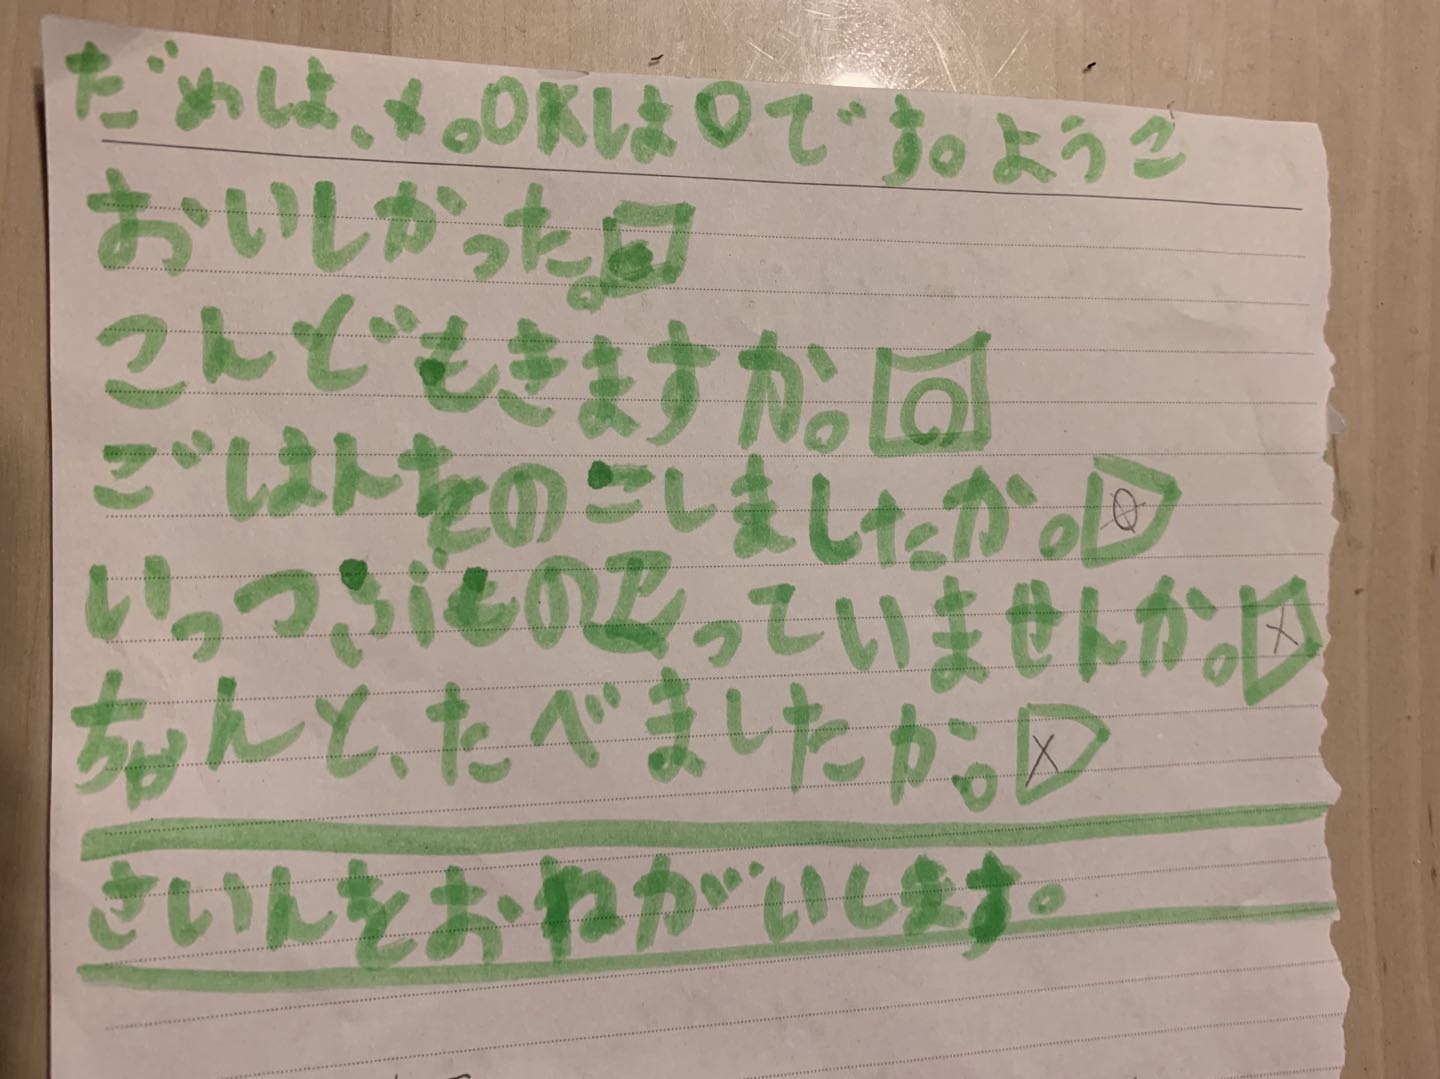 だめは、×。OKは○です。ようこ
おいしかった。
こんどもきますか。○
ごはんをのこしましたか。
いっつぶものこっていませんか。×
ちゃんと、たべましたか。×
さいんをおねがいします。